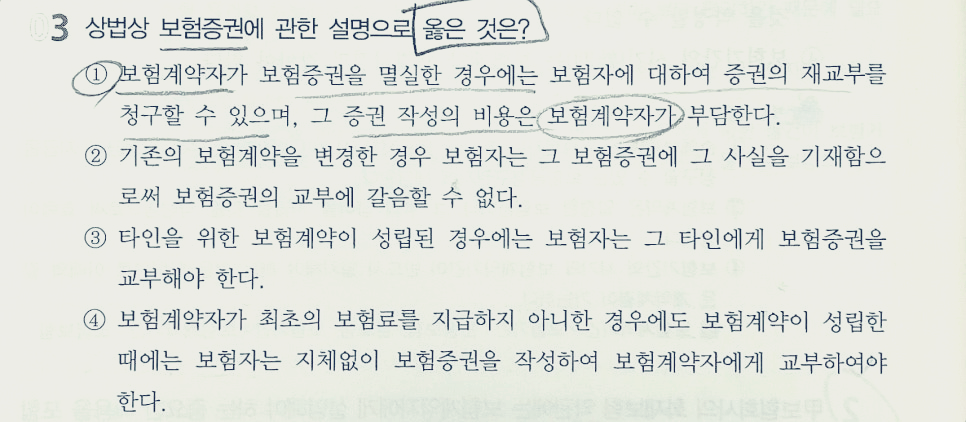 03 상법상 보험증권에 관한 설명으로 옳은 것은?
① 보험계약자가 보험증권을 멸실한 경우에는 보험자에 대하여 증권의 재교부를
청구할 수 있으며, 그 증권 작성의 비용은 보험계약자가 부담한다.
② 기존의 보험계약을 변경한 경우 보험자는 그 보험증권에 그 사실을 기재함으
로써 보험증권의 교부에 갈음할 수 없다.
③ 타인을 위한 보험계약이 성립된 경우에는 보험자는 그 타인에게 보험증권을
교부해야 한다.
④ 보험계약자가 최초의 보험료를 지급하지 아니한 경우에도 보험계약이 성립한
때에는 보험자는 지체없이 보험증권을 작성하여 보험계약자에게 교부하여야
한다.